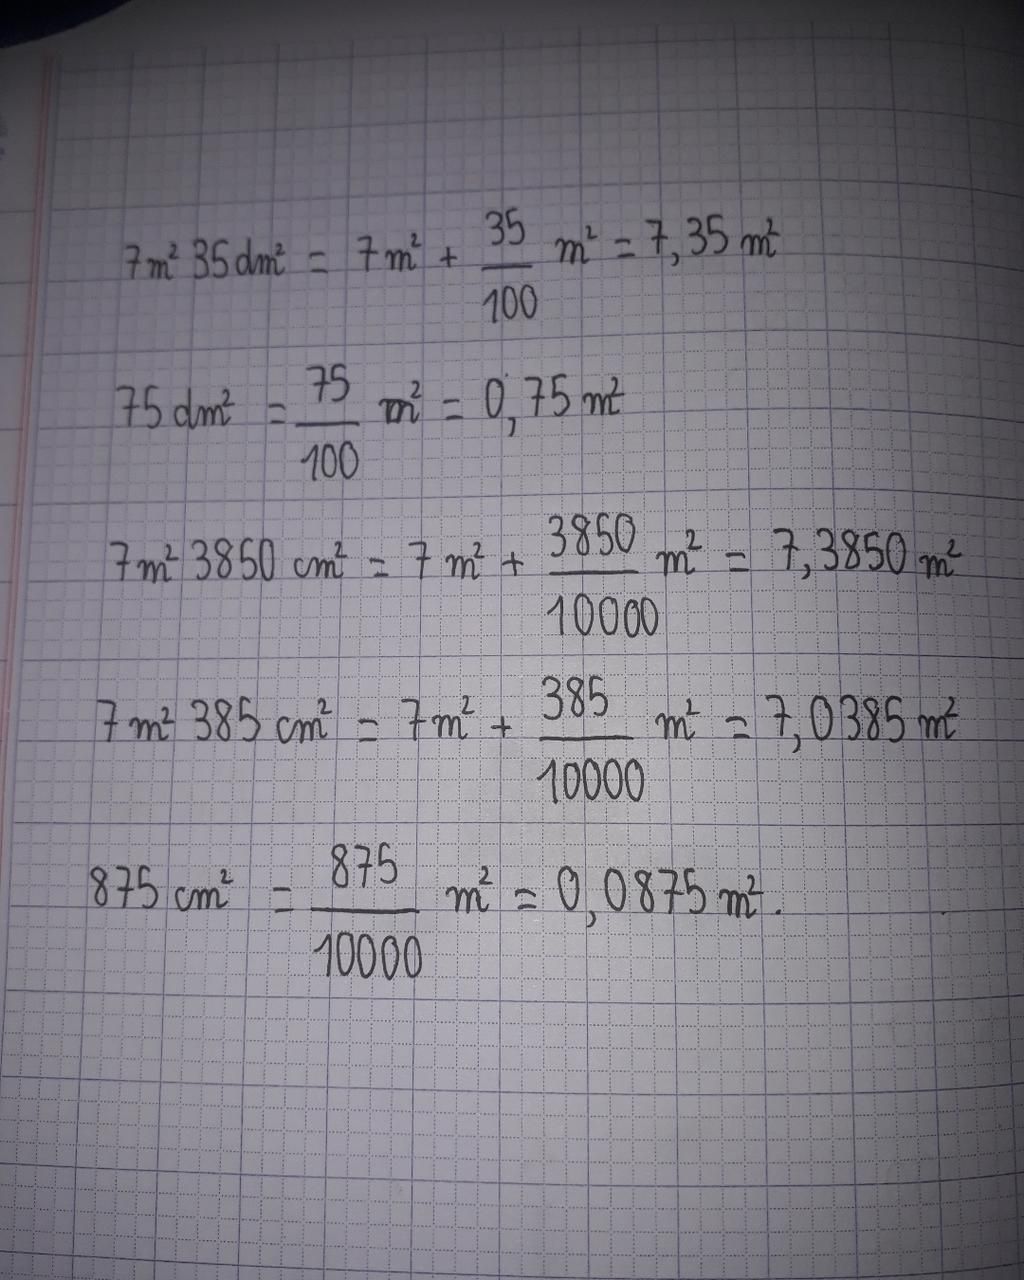 7m² 35dm² = 7m² + 35/100 m² = 7,35 m²
75 dm² = 75/100 m² = 0,75 m²
7m² 3850 cm² = 7 m² + 3850/10000 m² = 7,3850 m²
7m² 385 cm² = 7m² + 385/10000 m² = 7,0385 m²
875 cm² = 875/10000 m² = 0,0875 m².